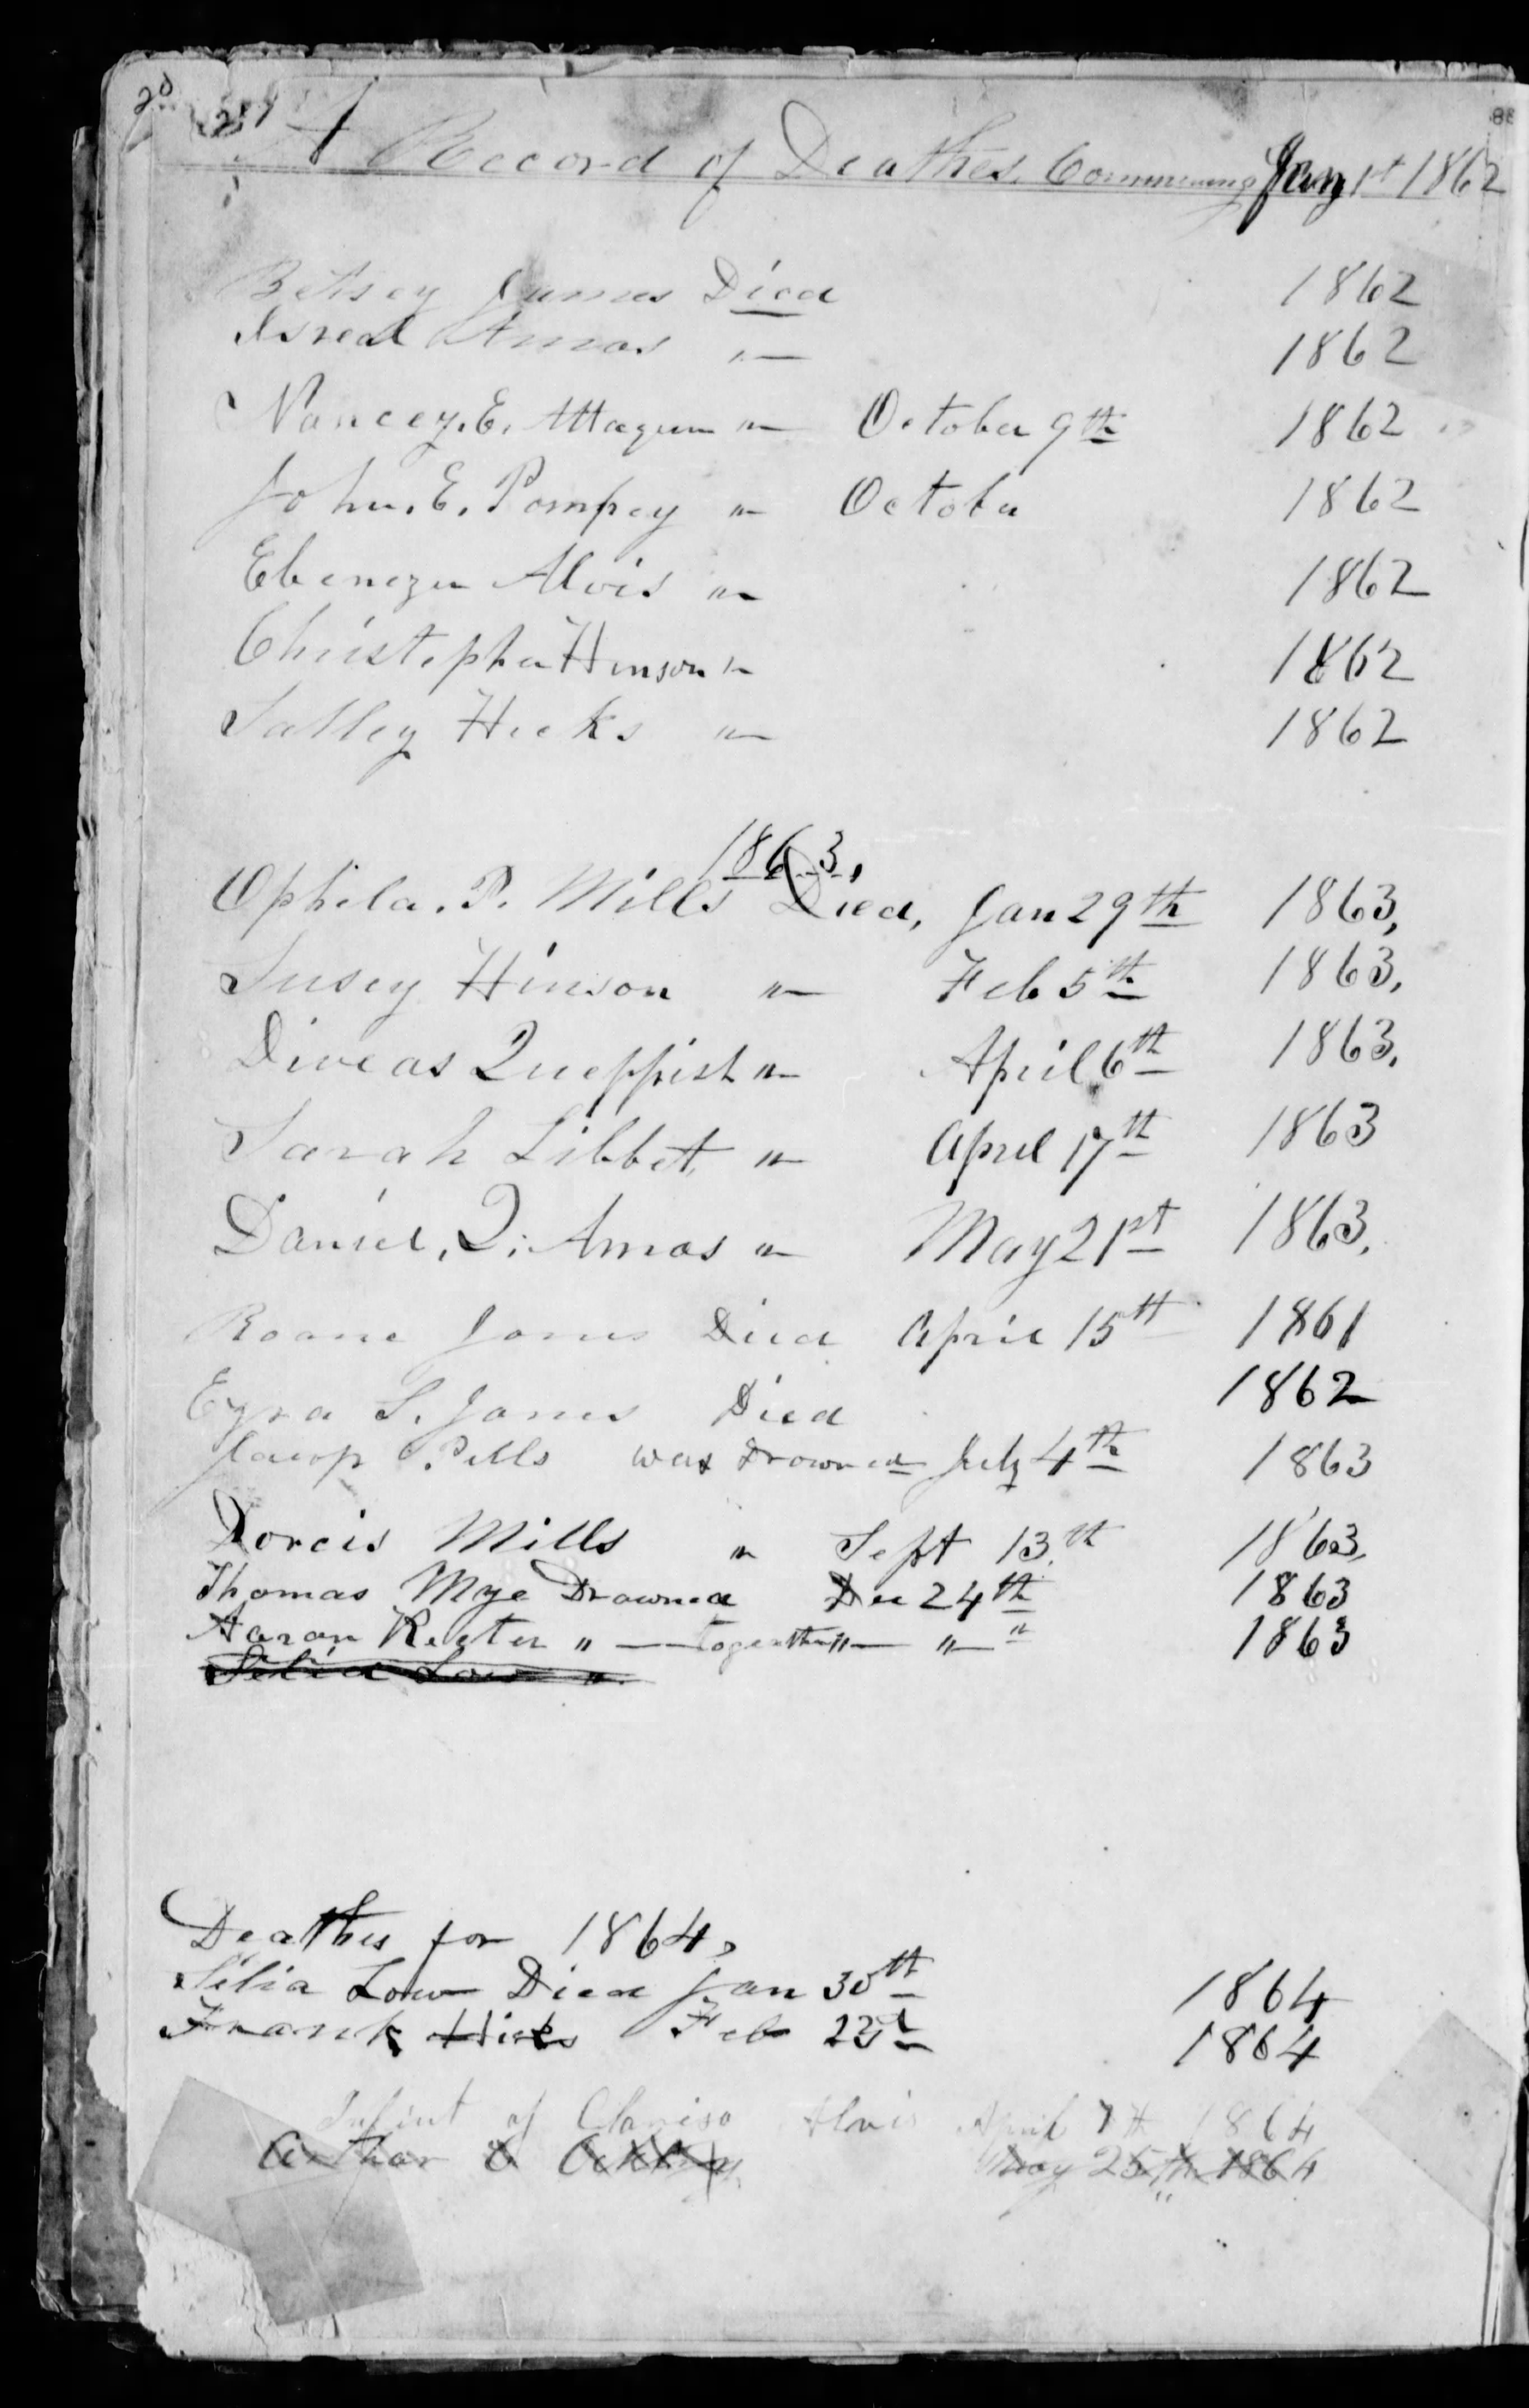 A Record of Deathes Commencing Jany 1st 1862
Betsey James Died 1862
Isreal Amos " 1862
Nancey. E. Attaquin " October 9th 1862
John. E. Pompey " October 1862
Ebenezer Alvis " 1862
Christopher Hinson " 1862
Salley Hicks " 1862
1863,
Ophila. P. Mills Died, Jan 29th 1863,
Susey Hinson " Feb 5th 1863,
Diveas Queppish " April 6th 1863,
Sarah Libbet " April 17th 1863
Daniel. Q. Amos " May 21st 1863,
Roane Jones Died April 15th 1861
Ezra S. Jones Died 1862
Pells was Drowned July 4th 1863
Dorcis Mills " Sept 13th 1863,
Thomas Mye Drowned Dec 24th 1863
Aaron Keeter " — together " — " " 1863
Silia Low "
Deathes for 1864,
Silia Low Died Jan 30th 1864
Frank Hicks Feb 23d 1864
Infint of Clarisa Alvis April 7th 1864
Arthor May 25th 1864